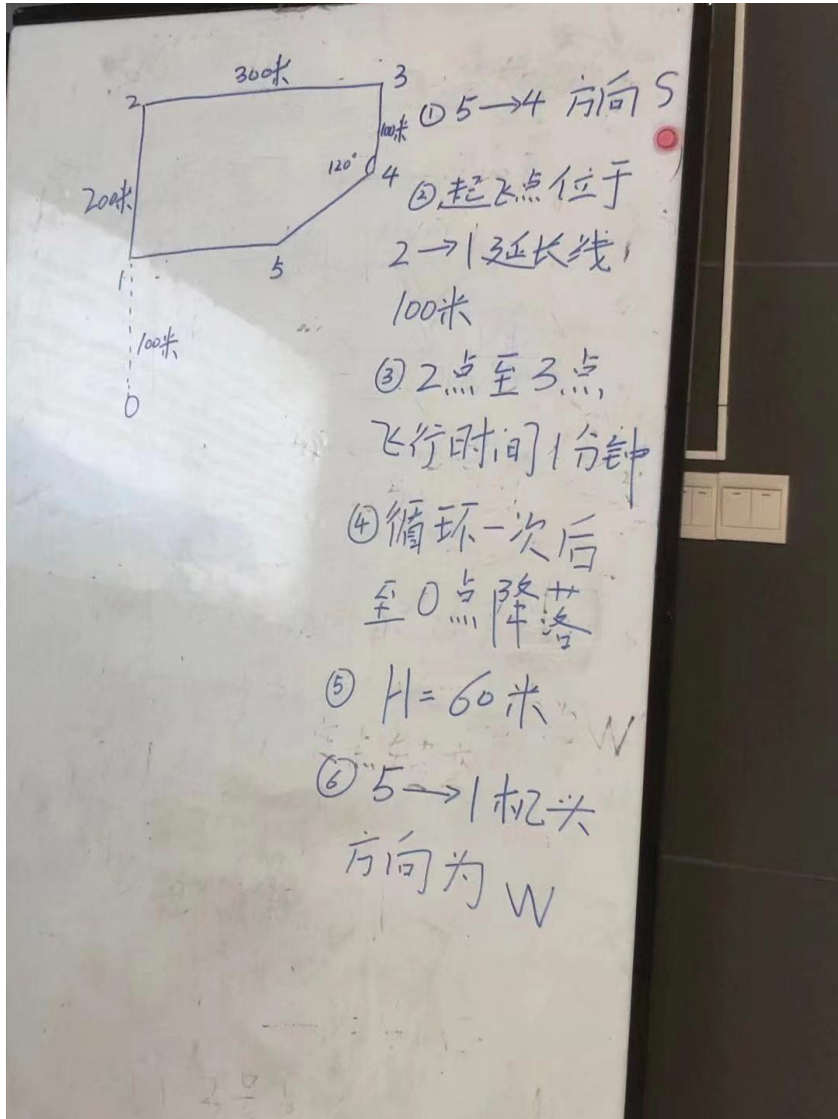 300米
2
3
100米
120°
4
200米
1
5
100米
0
①5→4 方向 S
②起飞点位于
2→1延长线
100米
③2点至3点
飞行时间1分钟
④循环一次后
至0点降落
⑤ H=60米
W
⑥5→1机头
方向为 W